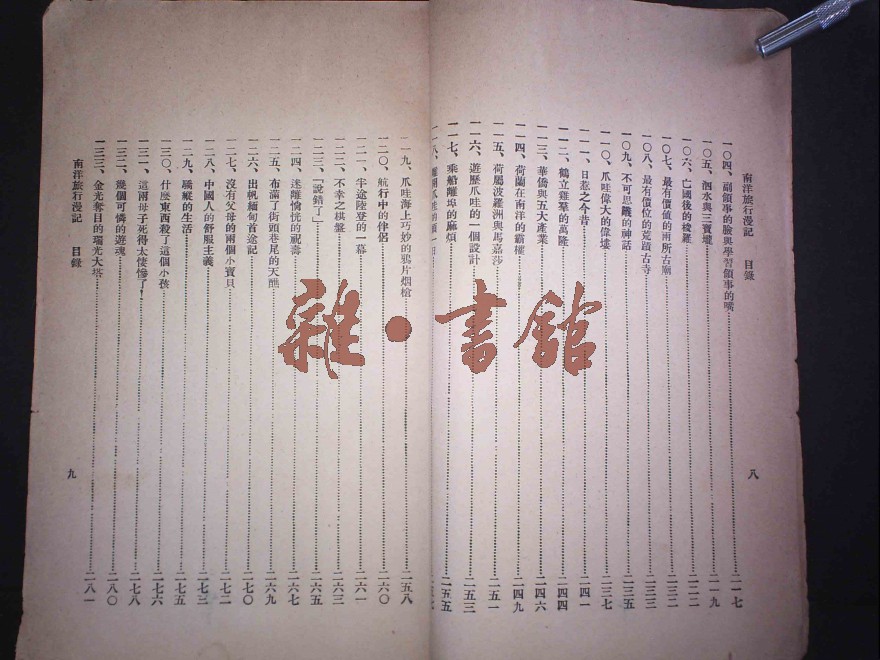 南洋旅行漫記 目錄 八
一〇四、副領事的臉與學習領事的嘴……二一七
一〇五、泗水與三寶壠……二一九
一〇六、亡國後的梭羅……二二二
一〇七、最有價值的兩所古廟
一〇八、最有價位的荒蹟古寺……二三三
一〇九、不可思議的神話……二三五
一一〇、爪哇偉大的偉壈……二三七
一一一、日惹之今昔……二四一
一一二、鶴立雞羣的萬隆……二四四
一一三、華僑與五大產業……二四六
一一四、荷蘭在南洋的霸權……二四九
一一五、荷屬波羅洲與馬嘉莎……二五一
一一六、遊歷爪哇的一個設計……二五三
一一七、乘船離埠的麻煩……二五五
一一九、爪哇海上巧妙的鴉片烟槍……二五八
一二〇、航行中的伴侶……二六〇
一二一、半途陸登的一幕……二六一
一二二、不幸之棋盤……二六三
一二三、「說錯了」……二六五
一二四、迷離愴恍的祝壽……二六七
一二五、布滿了街頭巷尾的天醮……二六九
一二六、出帆緬甸首途記……二七〇
一二七、沒有父母的兩個小寶貝……二七二
一二八、中國人的舒服主義……二七三
一二九、驕縱的生活……二七五
一三〇、什麼東西殺了這個小孩……二七六
一三一、這兩母子死得太悽慘了！……二七八
一三二、幾個可憐的遊魂……二八〇
一三三、金光奪目的瑞光大塔……二八一
南洋旅行漫記 目錄 九
雜·書館